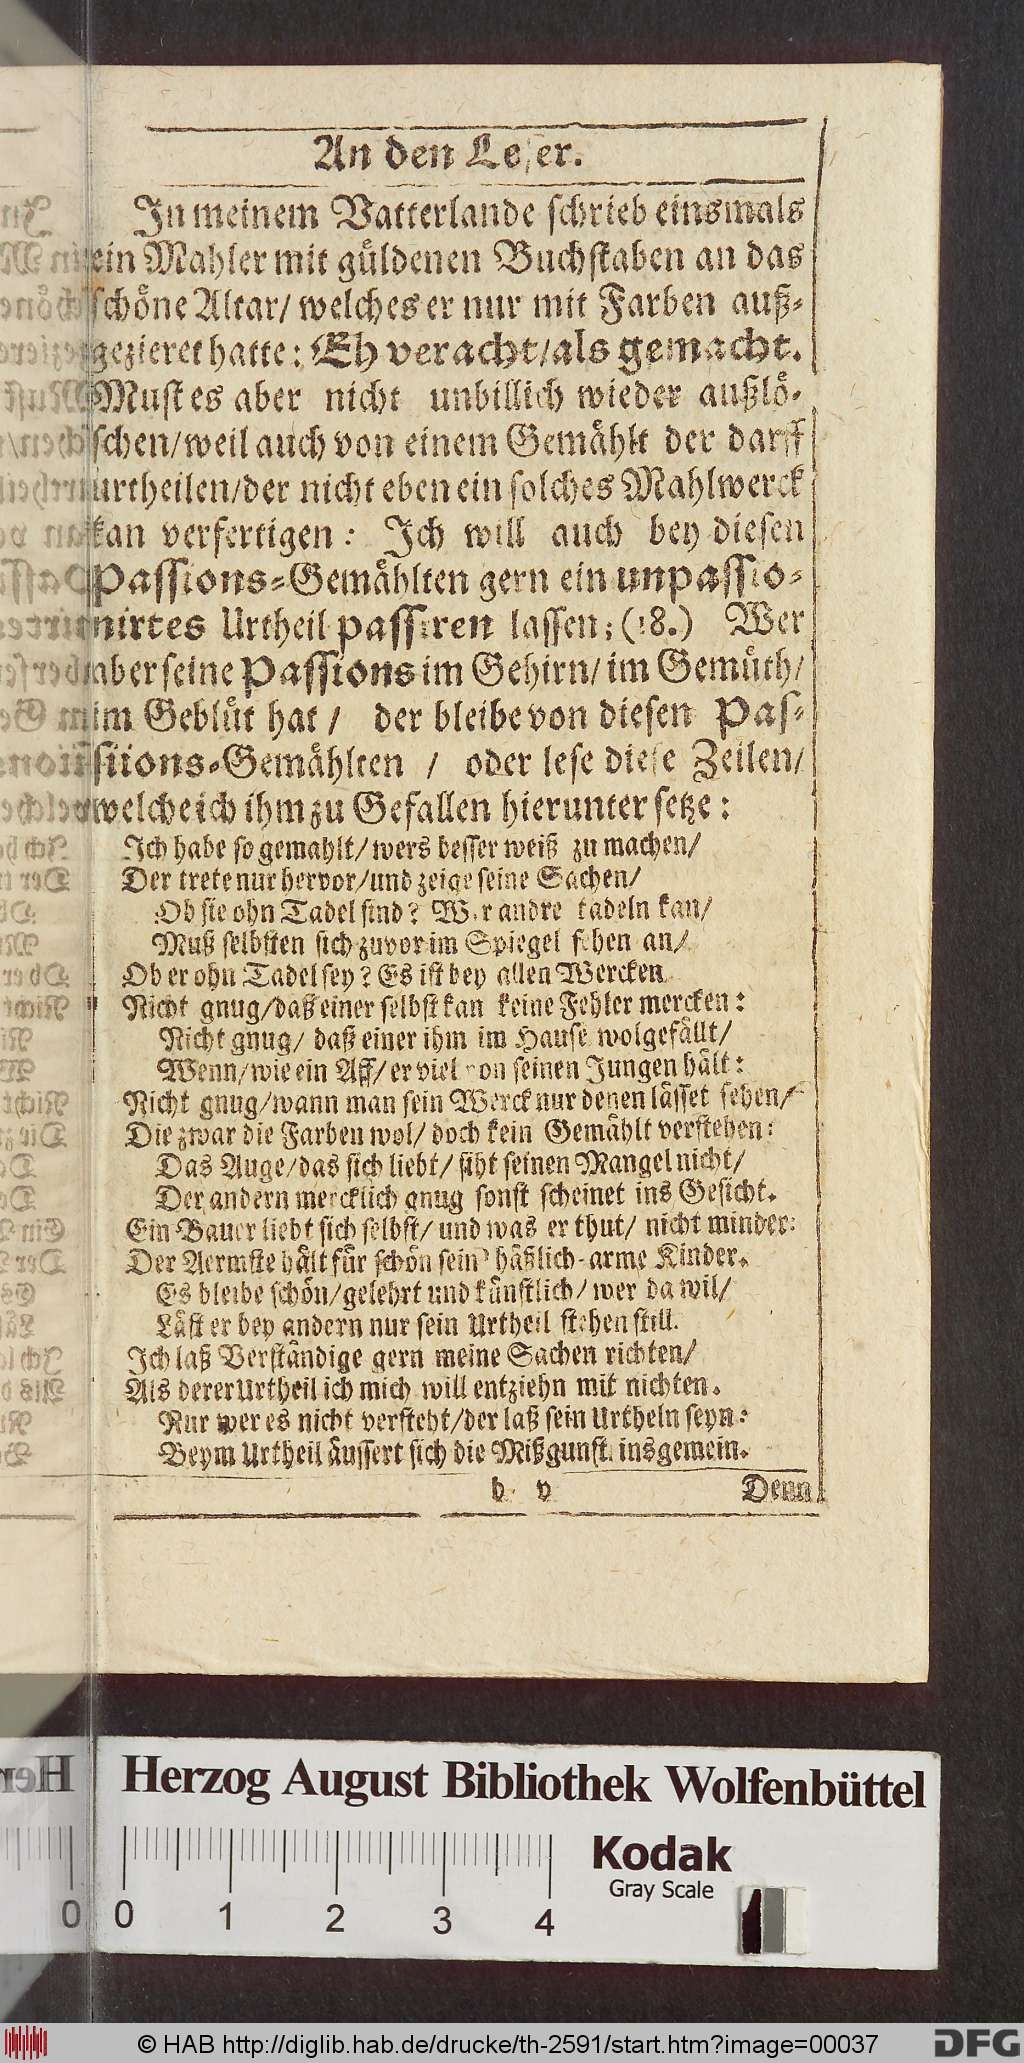 An den Leser.
In meinem Vatterlande schrieb einsmals
ein Mahler mit güldenen Buchstaben an das
schöne Altar/ welches er nur mit Farben auß-
gezieret hatte: Eh veracht/als gemacht.
Must es aber nicht unbillich wieder außlö-
schen/weil auch von einem Gemählt der darff
urtheilen/der nicht eben ein solches Mahlwerck
kan verfertigen: Ich will auch bey diesen
Passions-Gemählten gern ein unpassio-
nirtes Urtheil passiren lassen; (18.) Wer
aber seine Passions im Gehirn/ im Gemüth/
im Geblüt hat/ der bleibe von diesen Pas-
siions-Gemählten / oder lese diese Zeilen/
welche ich ihm zu Gefallen hierunter setze:
Ich habe so gemahlt/ wers besser weiß zu machen/
Der trete nur hervor/und zeige seine Sachen/
Ob sie ohn Tadel sind? Wer andre tadeln kan/
Muß selbsten sich zuvor im Spiegel sehen an/
Ob er ohn Tadel sey? Es ist bey allen Wercken
Nicht gnug/daß einer selbst kan keine Fehler mercken:
Nicht gnug/ daß einer ihm im Hause wolgefällt/
Wenn/wie ein Aff/ er viel von seinen Jungen hält:
Nicht gnug/wann man sein Werck nur denen lässet sehen/
Die zwar die Farben wol/ doch kein Gemählt verstehen:
Das Auge/das sich liebt/ siht seinen Mangel nicht/
Der andern mercklich gnug sonst scheinet ins Gesicht.
Ein Bauer liebt sich selbst/ und was er thut/ nicht minder:
Der Aermste hält für schön sein' häßlich-arme Kinder.
Es bleibe schön/gelehrt und künstlich/ wer da wil/
Läst er bey andern nur sein Urtheil stehen still.
Ich laß Verständige gern meine Sachen richten/
Als derer Urtheil ich mich will entziehn mit nichten.
Nur wer es nicht versteht/der laß sein Urtheln seyn:
Beym Urtheil äussert sich die Mißgunst insgemein.
b v Denn
Herzog August Bibliothek Wolfenbüttel
Kodak
Gray Scale
0 0 1 2 3 4
© HAB http://diglib.hab.de/drucke/th-2591/start.htm?image=00037
DFG